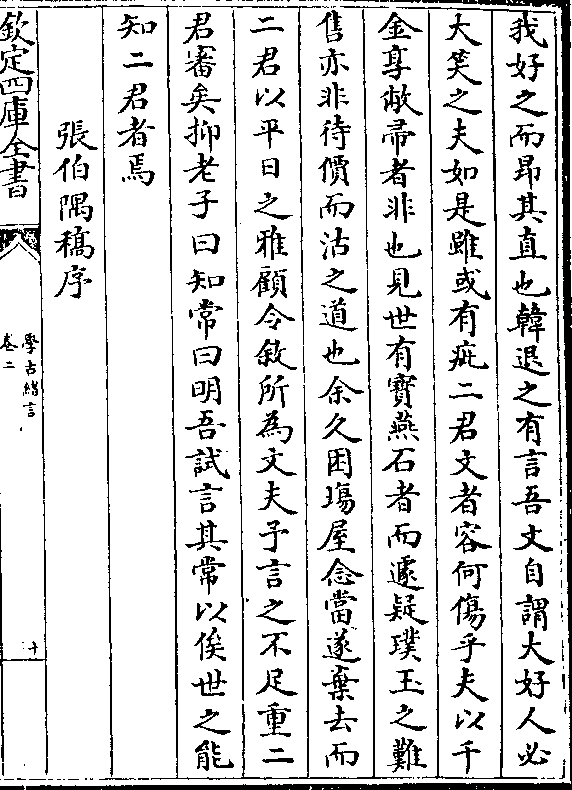 我好之而昂其直也韓退之有言吾文自謂大好人必
大笑之夫如是雖或有疵二君文者容何傷乎夫以千
金享敝帚者非也見世有寶燕石者而遽疑璞玉之難
售亦非待價而沽之道也余久困塲屋念當遂棄去而
二君以平日之雅顧令敘所為文夫予言之不足重二
君審矣抑老子曰知常曰明吾試言其常以俟世之能
知二君者焉
張伯隅稿序
欽定四庫全書
學古緒言
卷二
十